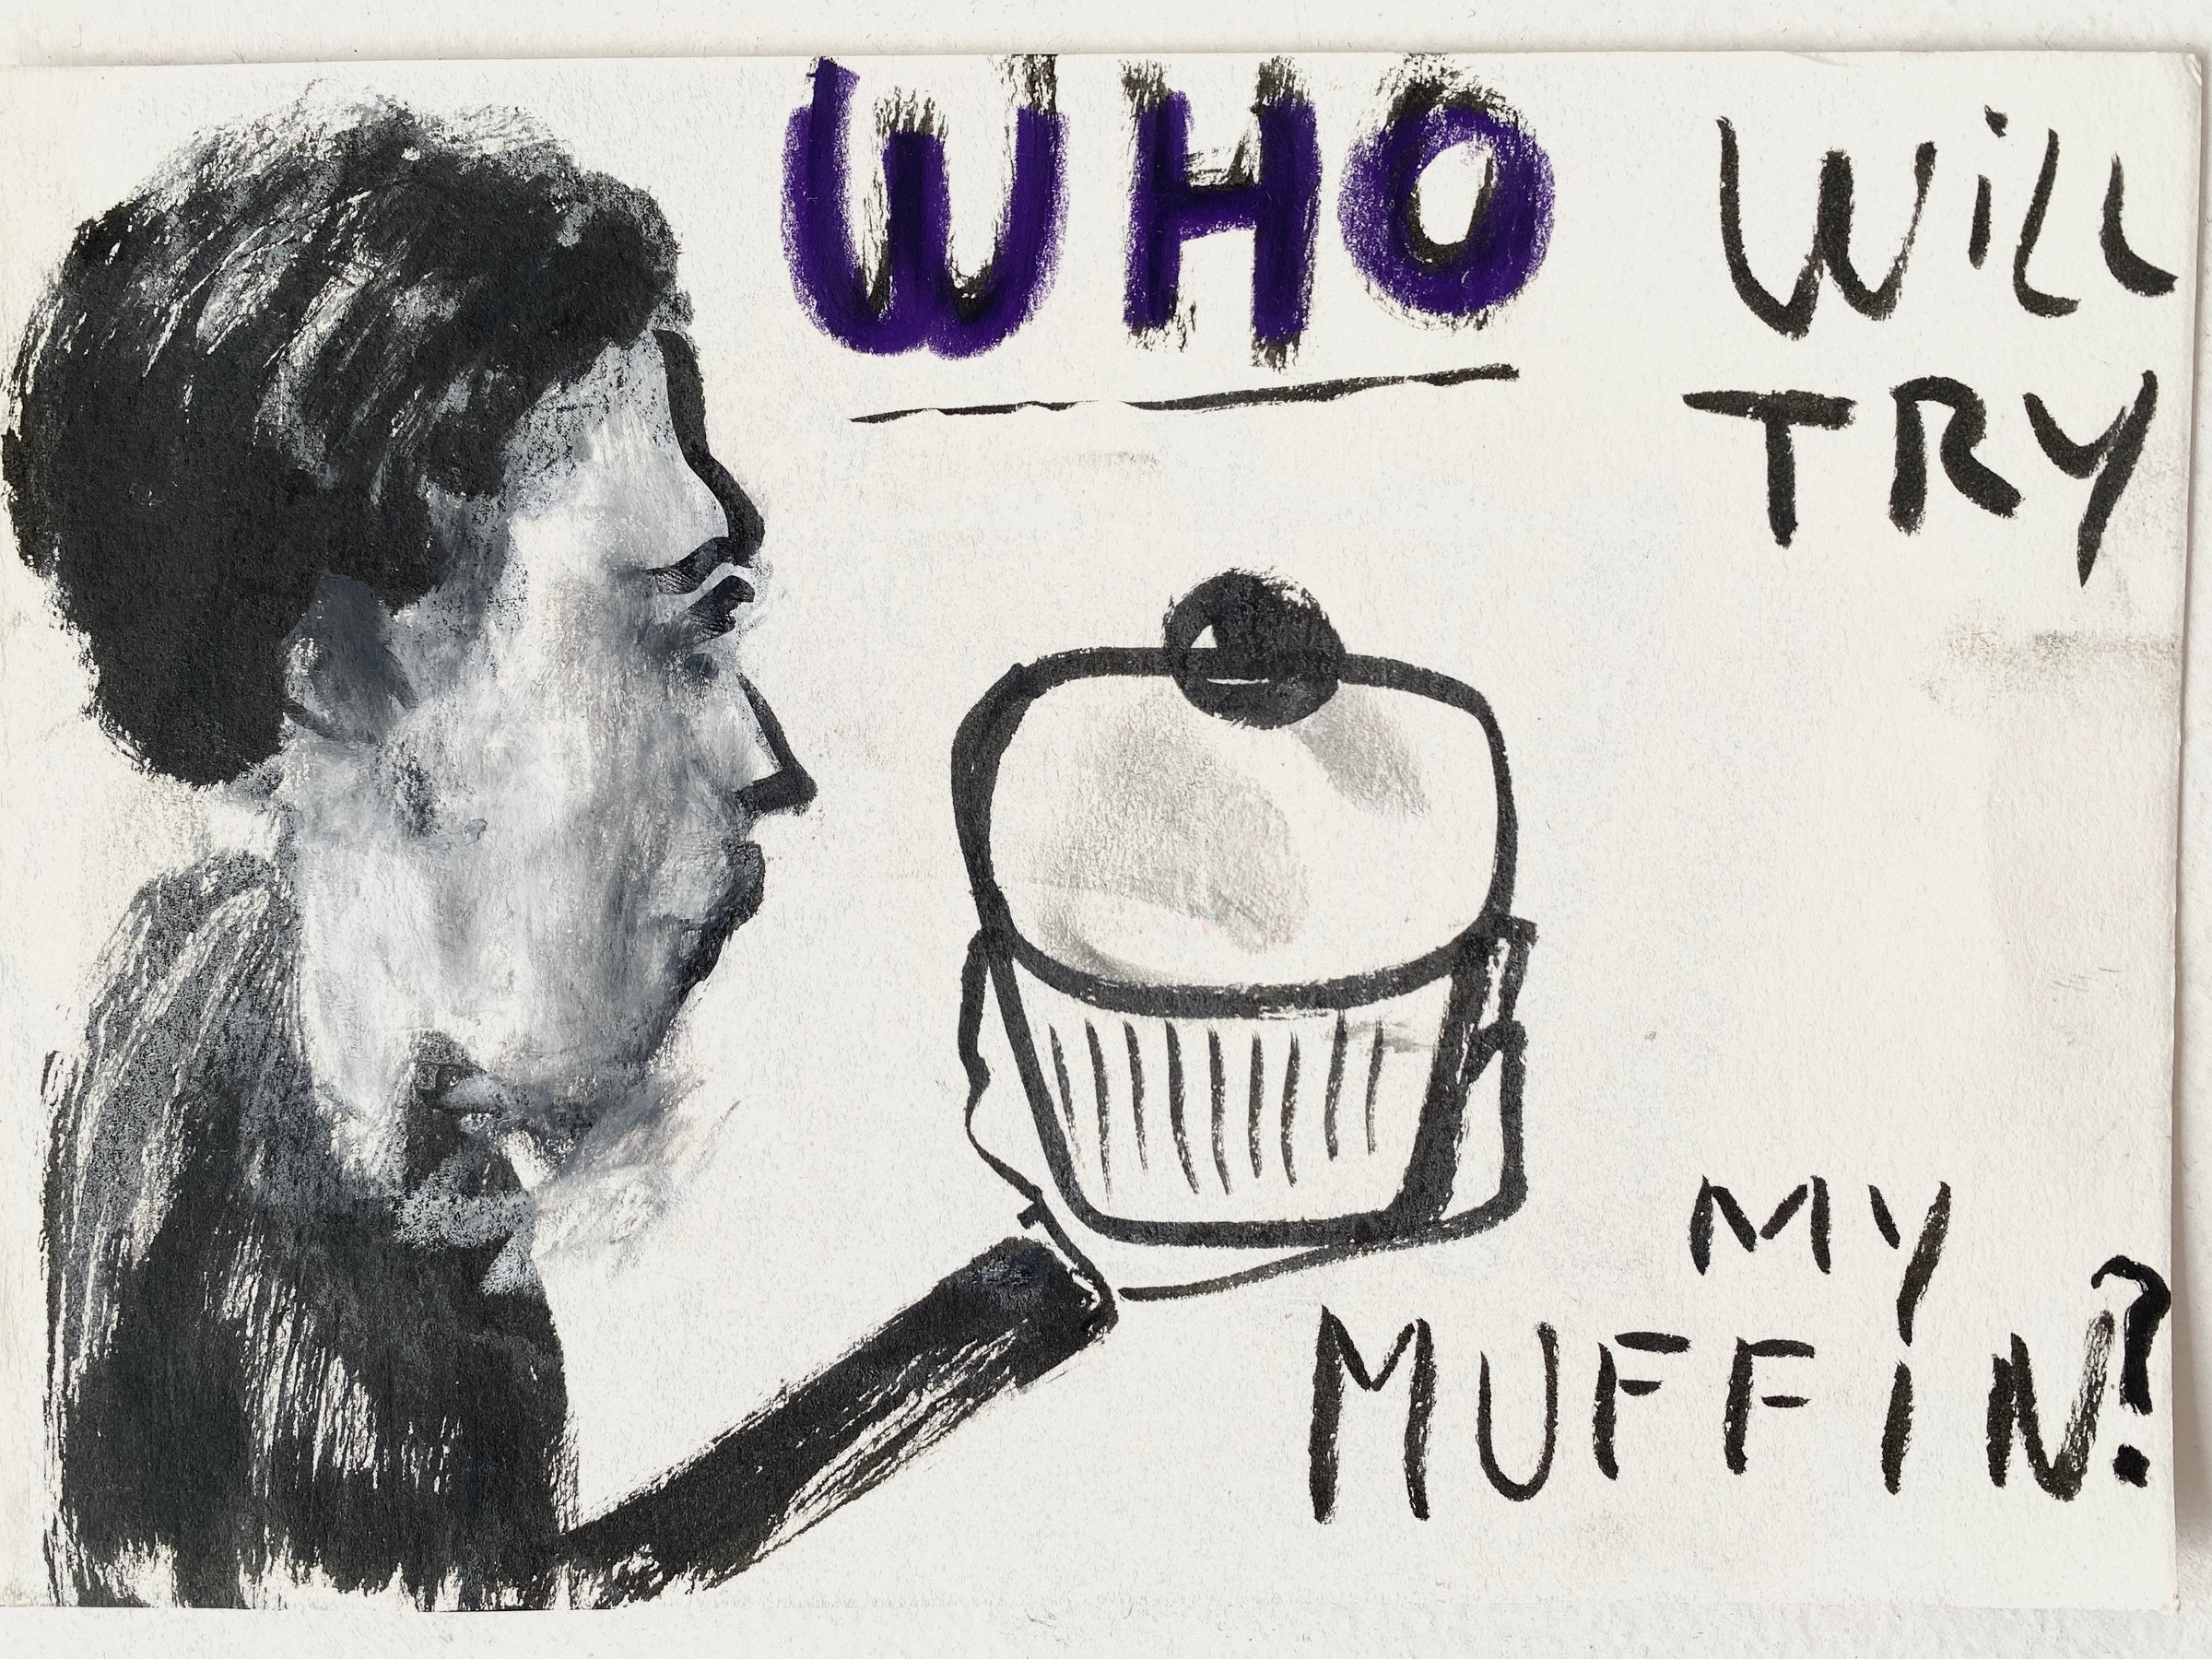 WHO WiLL
TRY
MY
MUFFiN?